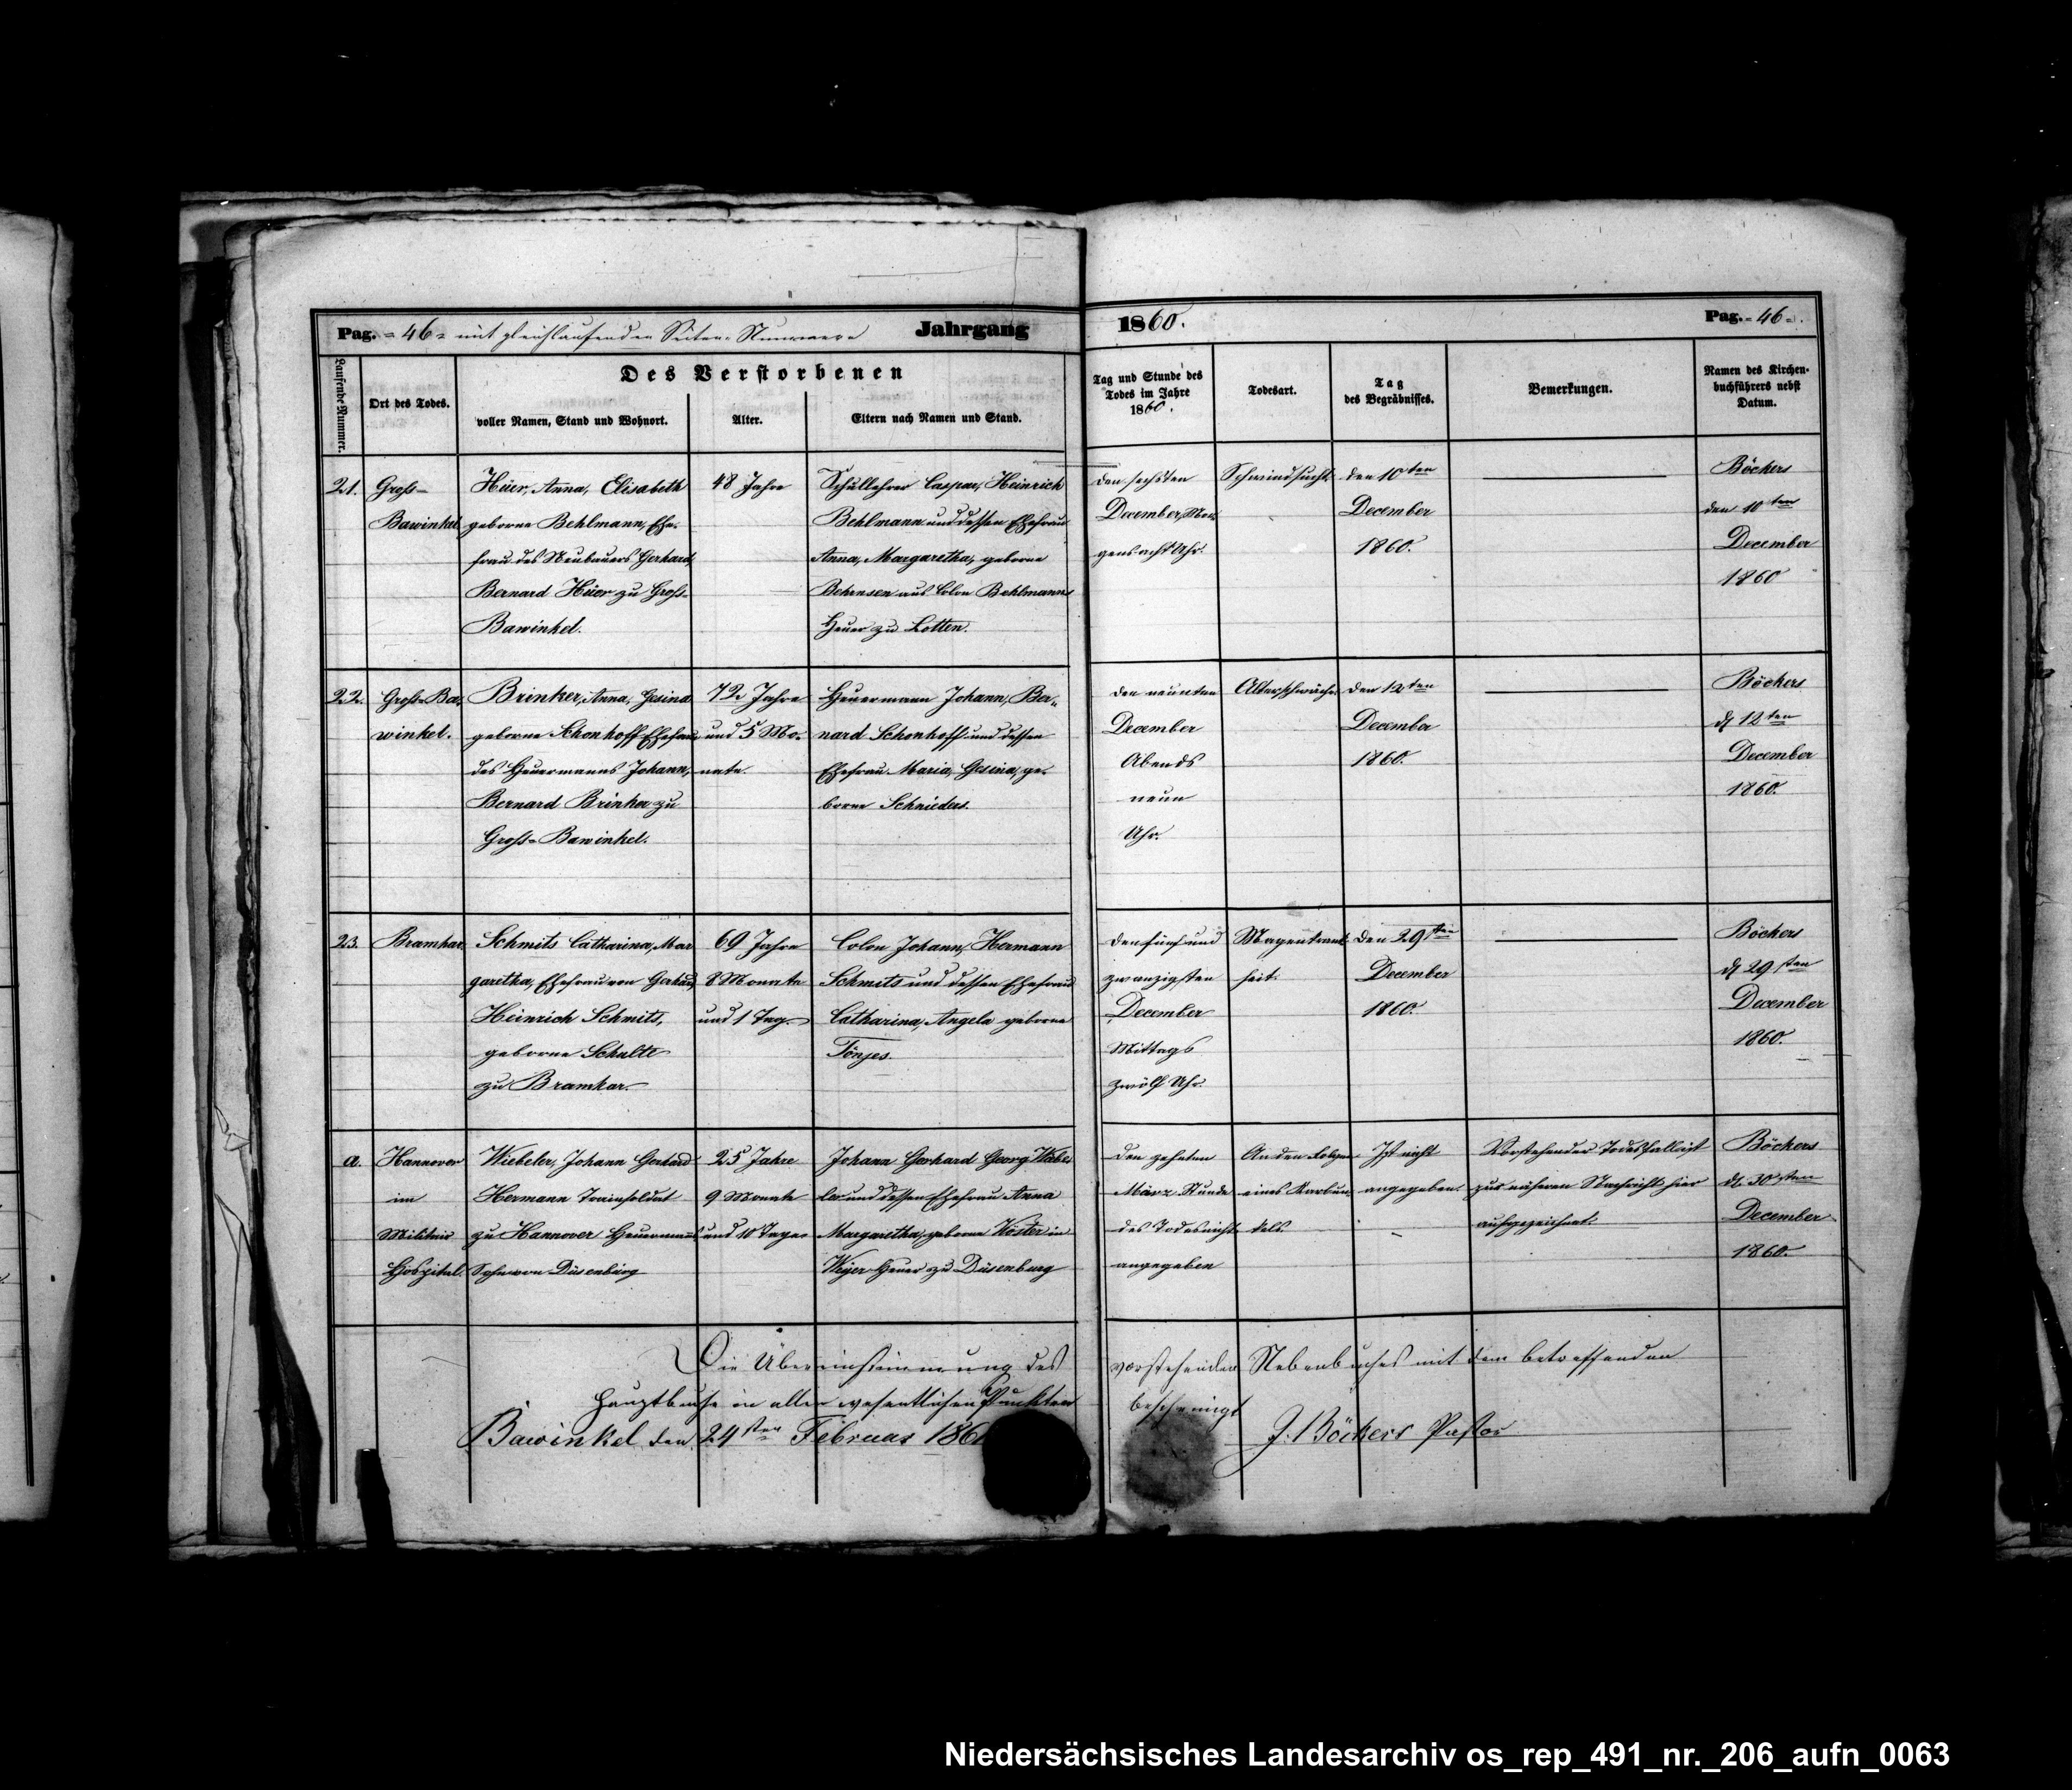 Pag. = 46 = mit gleichlaufenden Seiten-Nummern Jahrgang 1860. Pag. = 46 =.
Laufende Nummer.
Ort des Todes.
Des Verstorbenen
voller Namen, Stand und Wohnort.
Alter.
Eltern nach Namen und Stand.
Tag und Stunde des
Todes im Jahre
1860.
Todesart.
Tag
des Begräbnisses.
Bemerkungen.
Namen des Kirchen-
buchführers nebst
Datum.
21.
Groß-
Bawinkel
Heüer, Anna, Elisabeth
geborne Behlmann, Ehe-
frau des Neubauers Gerhard,
Bernard Heüer zu Groß-
Bawinkel.
48 Jahre
Schullehrer Caspar, Heinrich
Behlmann und dessen Ehefrau
Anna, Margaretha, geborne
Behnsen aus Colon Behlmanns
Heuer zu Lotten.
den sechsten
December, Mor-
gens acht Uhr.
Schwindsucht.
den 10ten
December
1860.
Böckers
den 10ten
December
1860
22.
Groß-Ba-
winkel.
Brinker, Anna, Gesina
geborne Schonhoff Ehefrau
des Heuermanns Johann,
Bernard Brinker zu
Groß-Bawinkel.
72 Jahre
und 5 Mo-
nate.
Heuermann Johann, Ber-
nard Schonhoff und dessen
Ehefrau Maria, Gesina, ge-
borne Schnieders.
den neünten
December
Abends
neun
Uhr.
Altersschwäche
den 12ten
December
1860.
Böckers
d. 12ten
December
1860.
23.
Bramhar
Schmits Catharina, Mar
garetha, Ehefrau von Gerhard,
Heinrich Schmits,
geborne Schulte
zu Bramhar.
69 Jahre
8 Monate
und 1 Tag.
Colon Johann, Hermann
Schmits und dessen Ehefrau
Catharina, Angela geborne
Tönjes.
den fünf und
zwanzigsten
December
Mittags
zwölf Uhr.
Magenkrank-
heit.
den 29sten
December
1860.
Böckers
d. 29sten
December
1860.
a.
Hannover
im
Militair
Hospital.
Wiebeler, Johann Gerhard
Hermann Trainsoldat
zu Hannover Heuermanns
Sohn von Düsenburg
25 Jahre
9 Monate
und 10 Tage
Johann Gerhard Georg Wiebe
ler und dessen Ehefrau Anna
Margaretha, geborne Köster in
Weyer Heuer zu Düsenburg
den zehnten
März Stunde
des Todes nicht
angegeben
An den Folgen
eines Karbun-
kels.
Ist nicht
angegeben.
Vorstehender Todesfall ist
zur näheren Nachricht hier
aufgezeichnet.
Böckers
d. 30sten
December
1860.
Die Übereinstimmung des vorstehenden Nebenbuches mit dem betreffenden
Hauptbuche in allen wesentlichen Punkten bescheinigt
Bawinkel den 24sten Februar 1861 J. Böckers Pastor
Niedersächsisches Landesarchiv os_rep_491_nr._206_aufn_0063